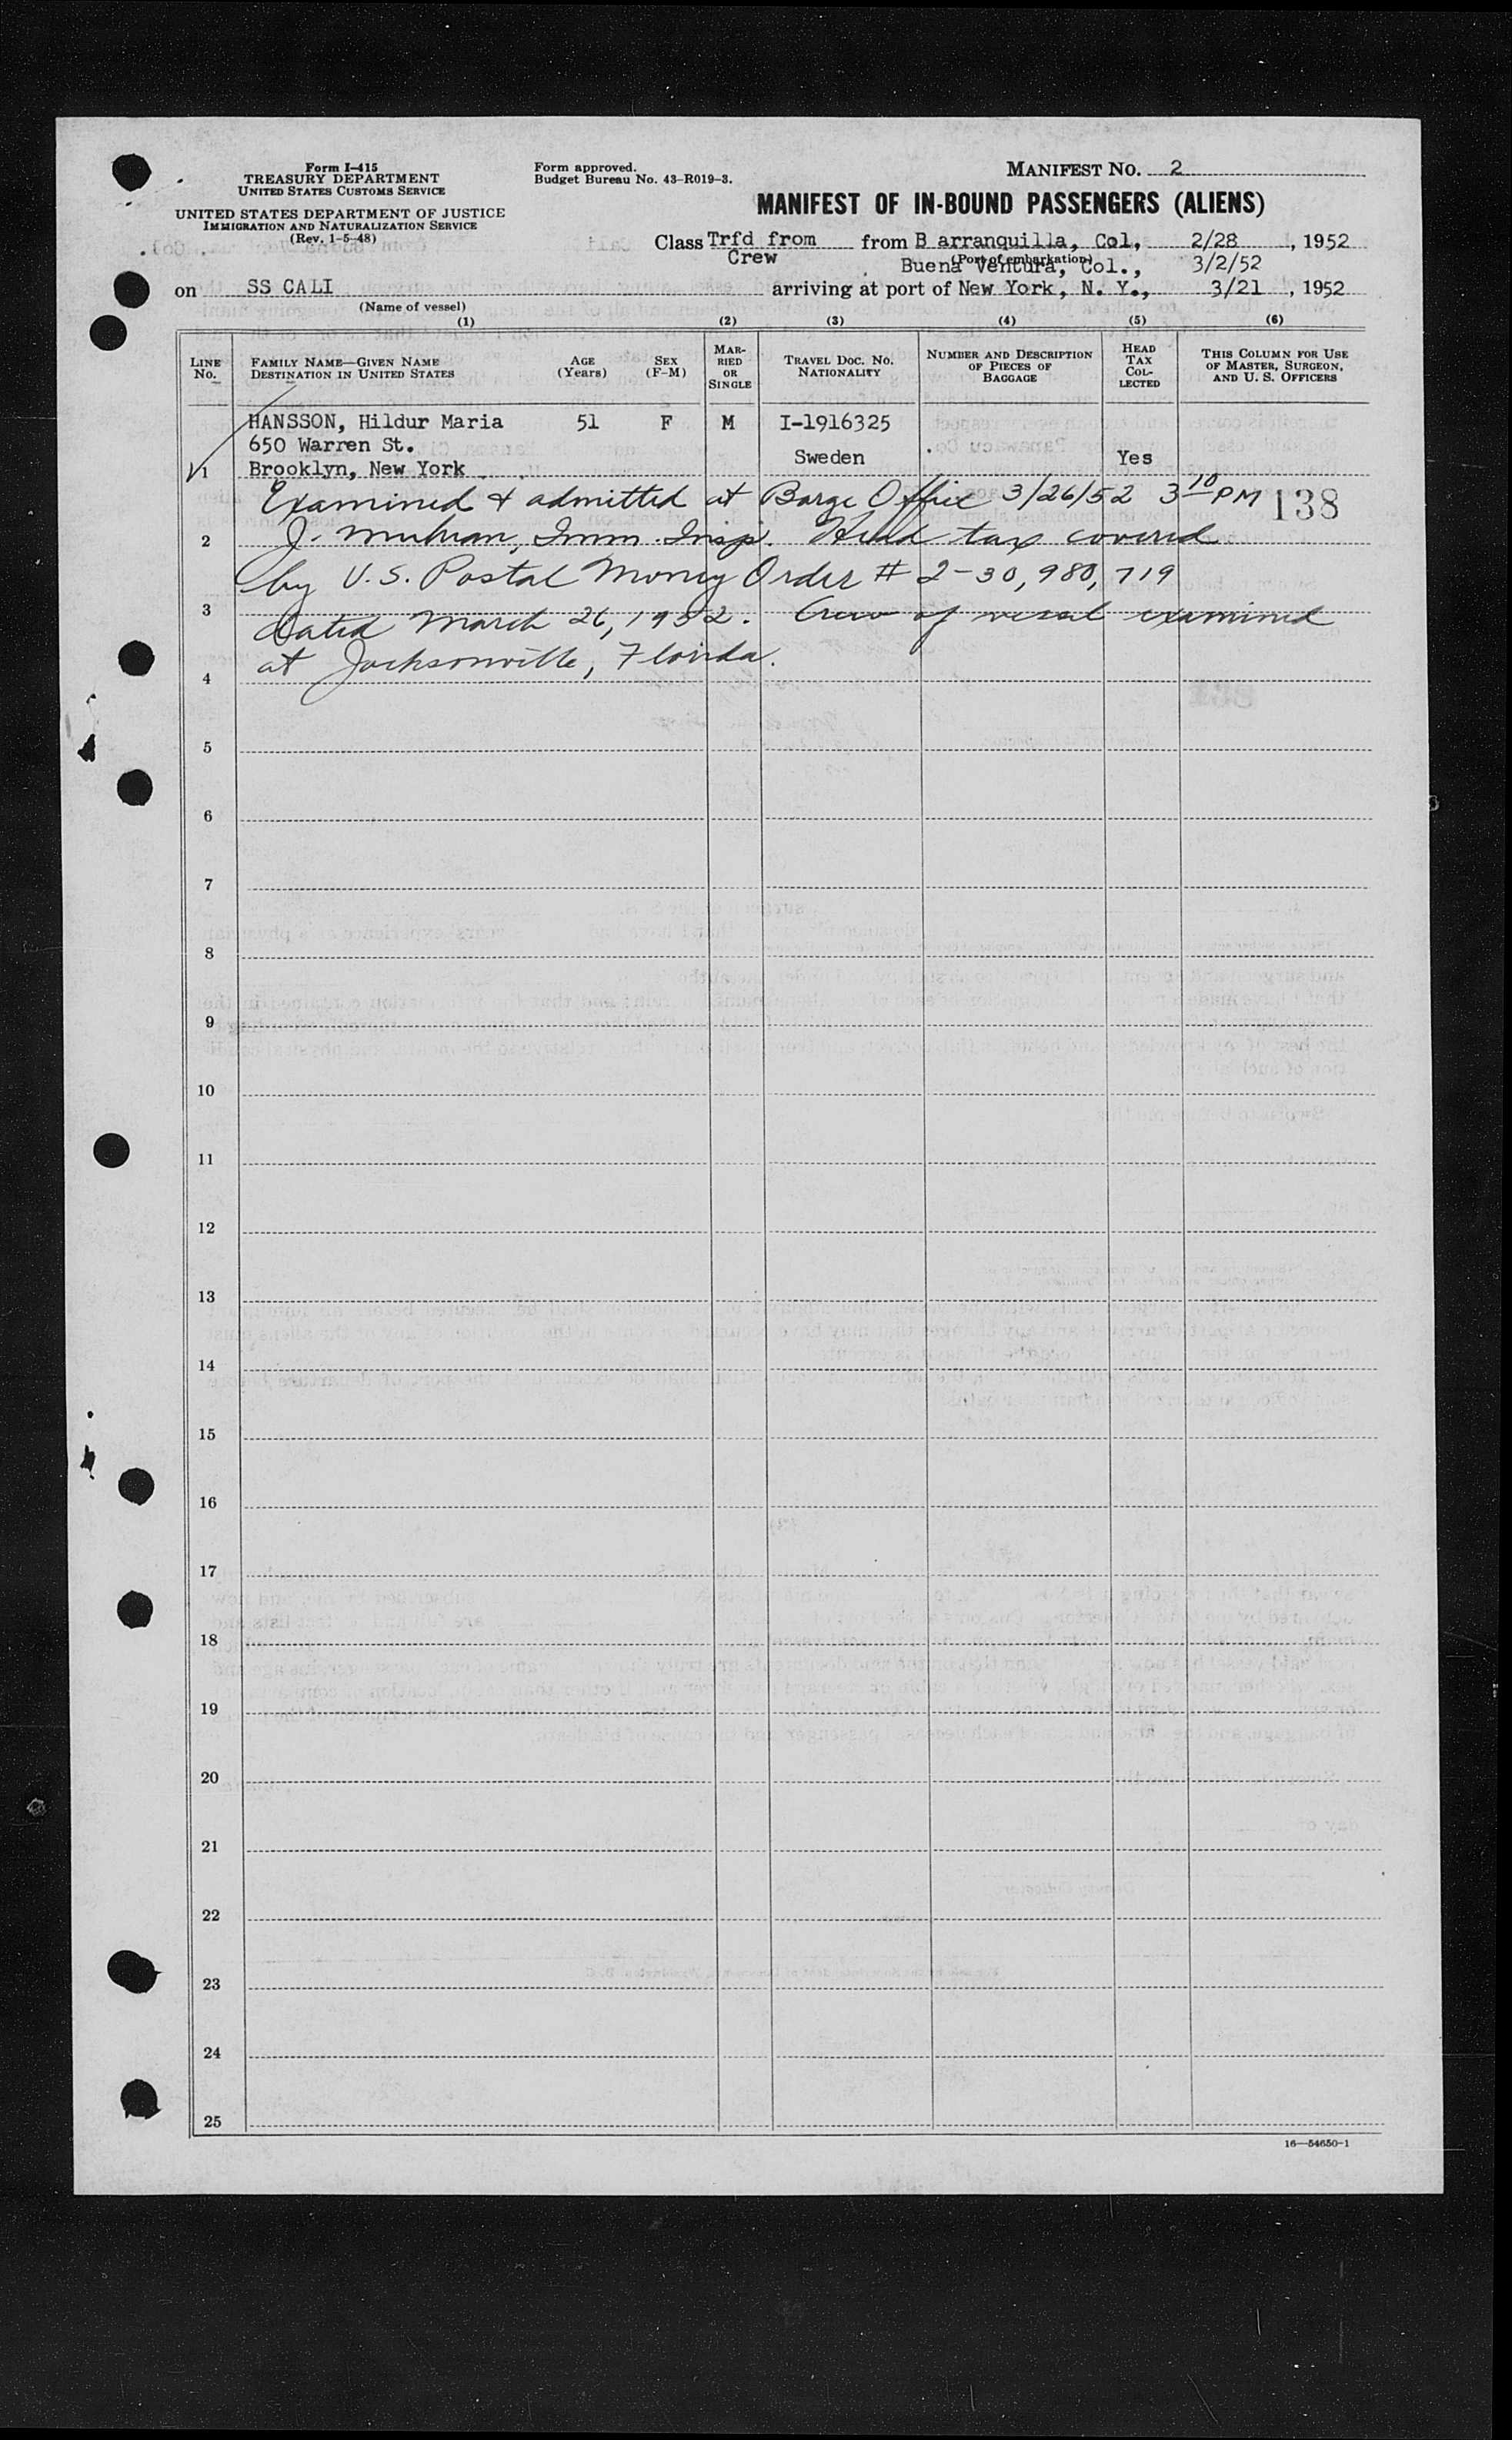 Form I-415
TREASURY DEPARTMENT
UNITED STATES CUSTOMS SERVICE
UNITED STATES DEPARTMENT OF JUSTICE
IMMIGRATION AND NATURALIZATION SERVICE
(Rev. 1-5-48)
Form approved.
Budget Bureau No. 43-R019-3.
MANIFEST NO. 2
MANIFEST OF IN-BOUND PASSENGERS (ALIENS)
Class Trfd from from B arranquilla, Col, 2/28, 1952
Crew (Port of embarkation)
Buena Ventura, Col., 3/2/52
on SS CALI arriving at port of New York, N. Y., 3/21, 1952
(Name of vessel)
(1) (2) (3) (4) (5) (6)
LINE No. FAMILY NAME—GIVEN NAME DESTINATION IN UNITED STATES AGE (Years) SEX (F-M) MARRIED OR SINGLE TRAVEL DOC. NO. NATIONALITY NUMBER AND DESCRIPTION OF PIECES OF BAGGAGE HEAD TAX COLLECTED THIS COLUMN FOR USE OF MASTER, SURGEON, AND U. S. OFFICERS
HANSSON, Hildur Maria 51 F M I-1916325
650 Warren St.
Sweden Yes
1 Brooklyn, New York
Examined & admitted at Barge Office 3/26/52 3 10 PM 138
2 J. Imm. Insp. Head tax covered
by U.S. Postal Money Order # 2-30,980,719
3 dated March 26, 1952. Crew of vessel examined
4 at Jacksonville, Florida.
5
6
7
8
9
10
11
12
13
14
15
16
17
18
19
20
21
22
23
24
25
16—54650-1